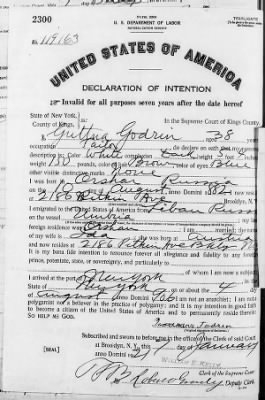 2300
U. S. DEPARTMENT OF LABOR
TRIPLICATE
No. 119163
UNITED STATES OF AMERICA
DECLARATION OF INTENTION
Invalid for all purposes seven years after the date hereof
State of New York,
County of Kings,
In the Supreme Court of Kings County
I, Godrin, aged 38 years,
occupation Tailor, do declare on oath that my personal
description is: Color White, complexion Dark, height 5 feet
110 pounds, color of hair Brown, color of eyes Blue
other visible distinctive marks None
I was born in Orshan Russia
on the day of August, anno Domini 1882
2186 Pitkin Ave
I emigrated to the United States of America from Libau Russ
on the vessel Umbria
foreign residence was Orshan
of my wife is Ida; she was born at Russia
and now resides at 2186 Pitkin Ave
It is my bona fide intention to renounce forever all allegiance and fidelity to any foreign
prince, potentate, state, or sovereignty, and particularly to
of whom I am now a subject
I arrived at the port of New York
New York on or about the 4 day
of August, anno Domini 1906; I am not an anarchist; I am not a
polygamist nor a believer in the practice of polygamy; and it is my intention in good faith
to become a citizen of the United States of America and to permanently reside therein:
SO HELP ME GOD.
Subscribed and sworn to before me in the office of the Clerk of said Court
at Brooklyn, N. Y., this 21 day of January
anno Domini
[SEAL]
WILLIAM F. KELLY
Clerk of the Supreme Court
Deputy Clerk